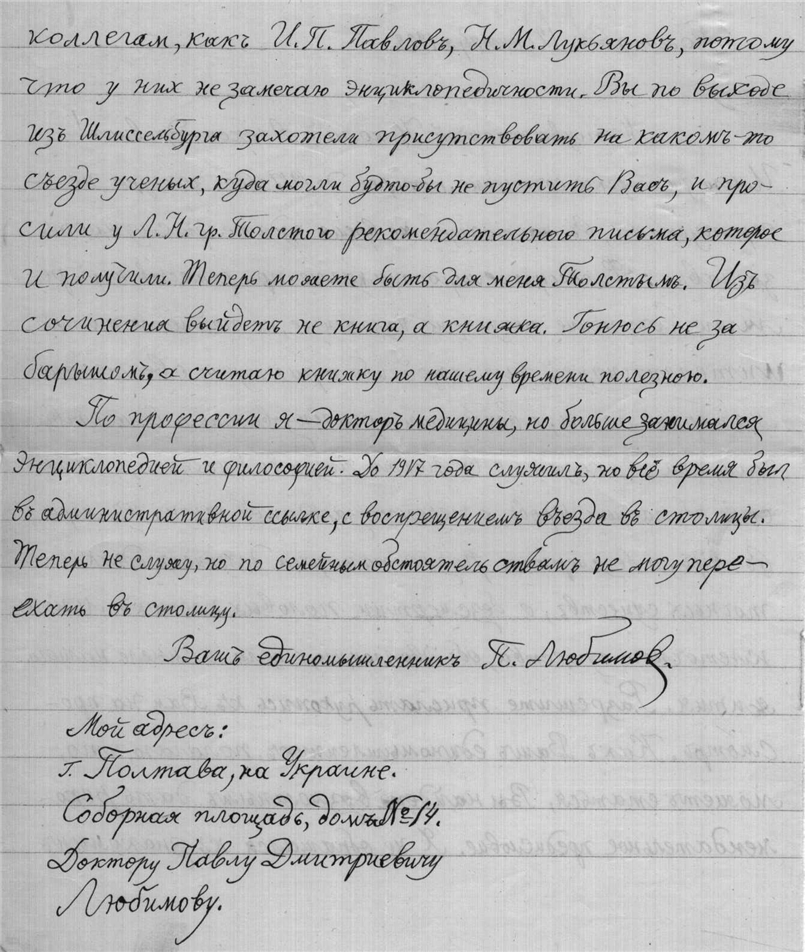 коллегам, какъ И. П. Павловъ, Н. М. Лукьяновъ, потому
что у них не замечаю энциклопедичности. Вы по выходе
изъ Шлиссельбурга захотели присутствовать на какомъ-то
съезде ученых, куда могли будто-бы не пустить Васъ, и про-
сили у Л. Н. гр. Толстого рекомендательного письма, которое
и получили. Теперь можете быть для меня Толстымъ. Изъ
сочинения выйдетъ не книга, а книжка. Гонюсь не за
барышомъ, а считаю книжку по нашему времени полезною.
По профессии я — докторъ медицины, но больше занимался
энциклопедией и философией. До 1917 года служилъ, но всё время был
въ административной ссылке, с воспрещениемъ въезда въ столицы.
Теперь не служу, но по семейным обстоятельствамъ не могу пере-
ехать въ столицу.
Вашъ единомышленникъ П. Любимов.
Мой адресъ:
г. Полтава, на Украине.
Соборная площадь, домъ № 14.
Доктору Павлу Дмитриевичу
Любимову.